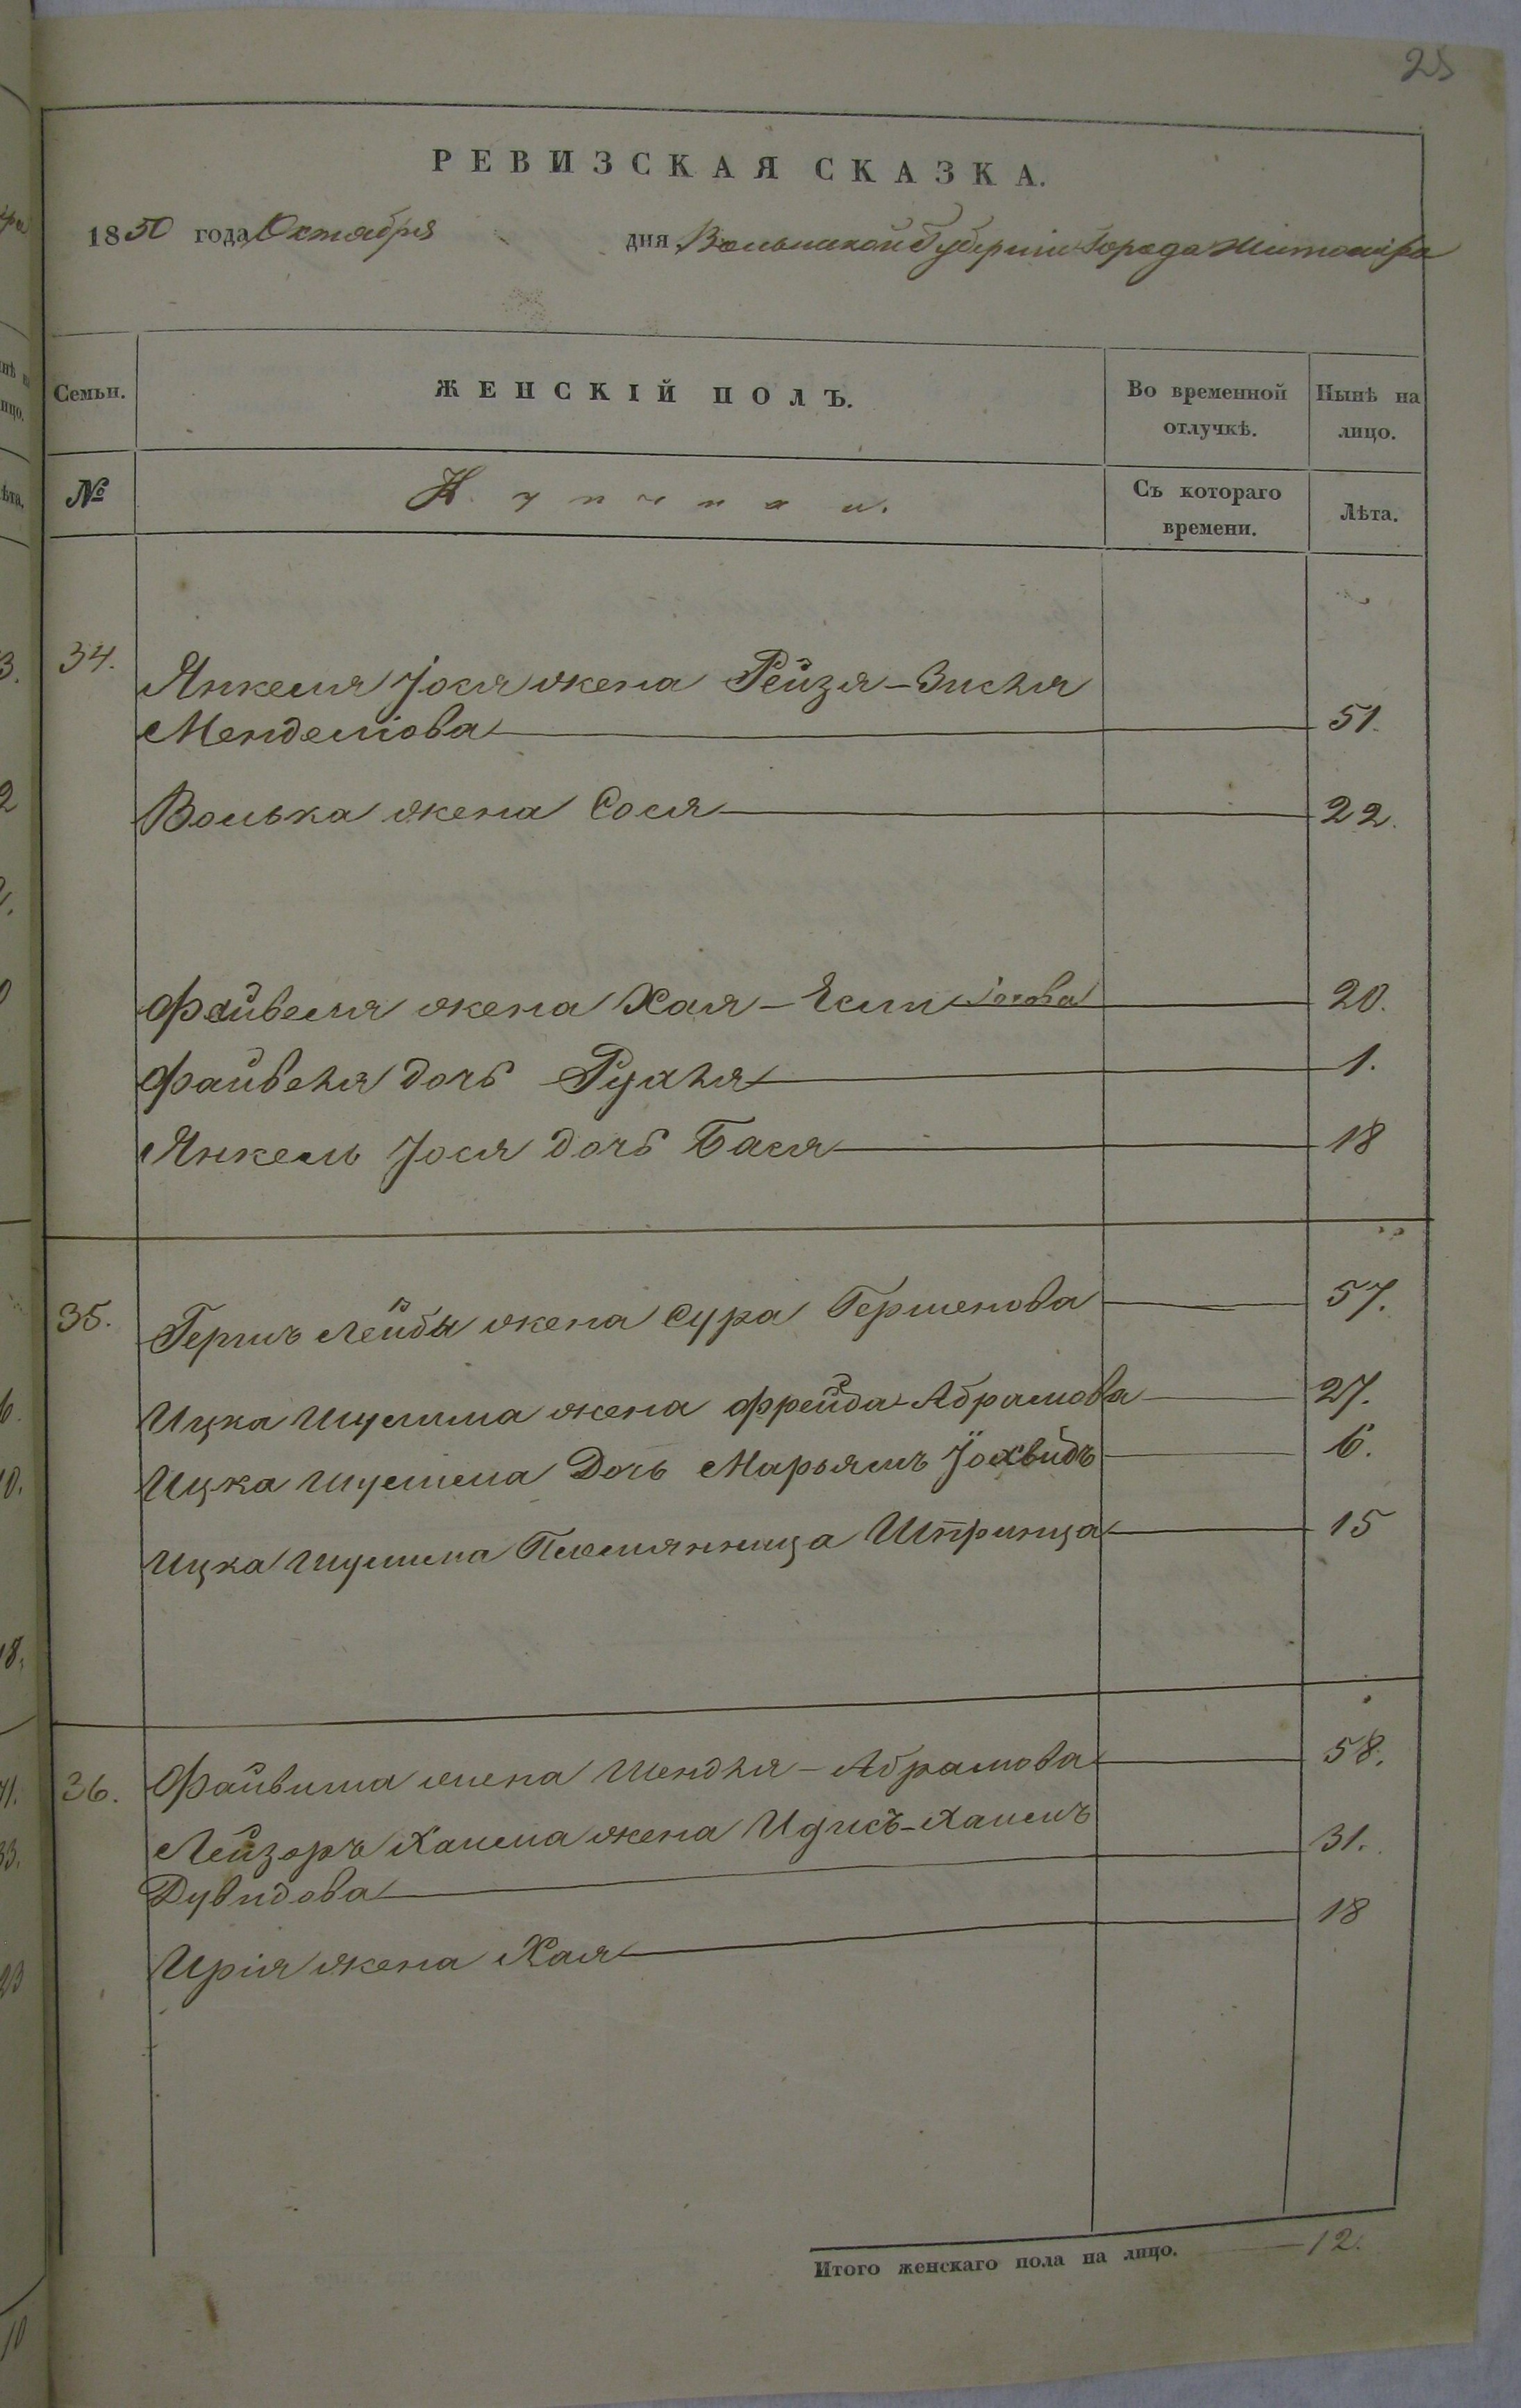 25
РЕВИЗСКАЯ СКАЗКА.
1850 года Октября дня Волынской Губерніи Города Житоміра
Семьи. ЖЕНСКІЙ ПОЛЪ. Во временной отлучкѣ. Нынѣ на лицо.
№ Съ котораго времени. Лѣта.
34. Янкеля Іося жена Рейзя-Зисля
Менделіова 51.
Волька жена Сося 22.
Файвеля жена Хая- 20.
Файвеля дочь Рухля 1.
Янкель Іося дочь Бася 18
35. Гершъ Лейбы жена Сура Гершенова 57.
Ицка Шулима жена Фрейда Абрамова 27.
Ицка Шулима Дочь Марьямъ Іохвидъ 6.
Ицка Шулима Племянница Шпринца 15
36. Файвиша жена Шендля-Абрамова 58.
Лейзоръ Хаима жена Идисъ- Дувидова 31.
Урія жена Хая 18
Итого женскаго пола на лицо. 12.